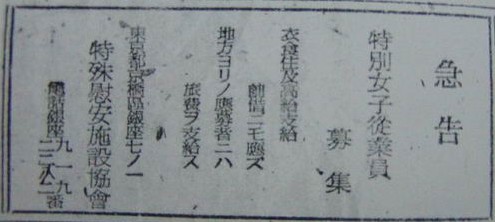 急告
特別女子從業員
募集
衣食住及高給支給
前借ニモ應ズ
地方ヨリノ應募者ニハ
旅費ヲ支給ス
東京都京橋區銀座七ノ一
特殊慰安施設協會
電話銀座九一九番
二二八二